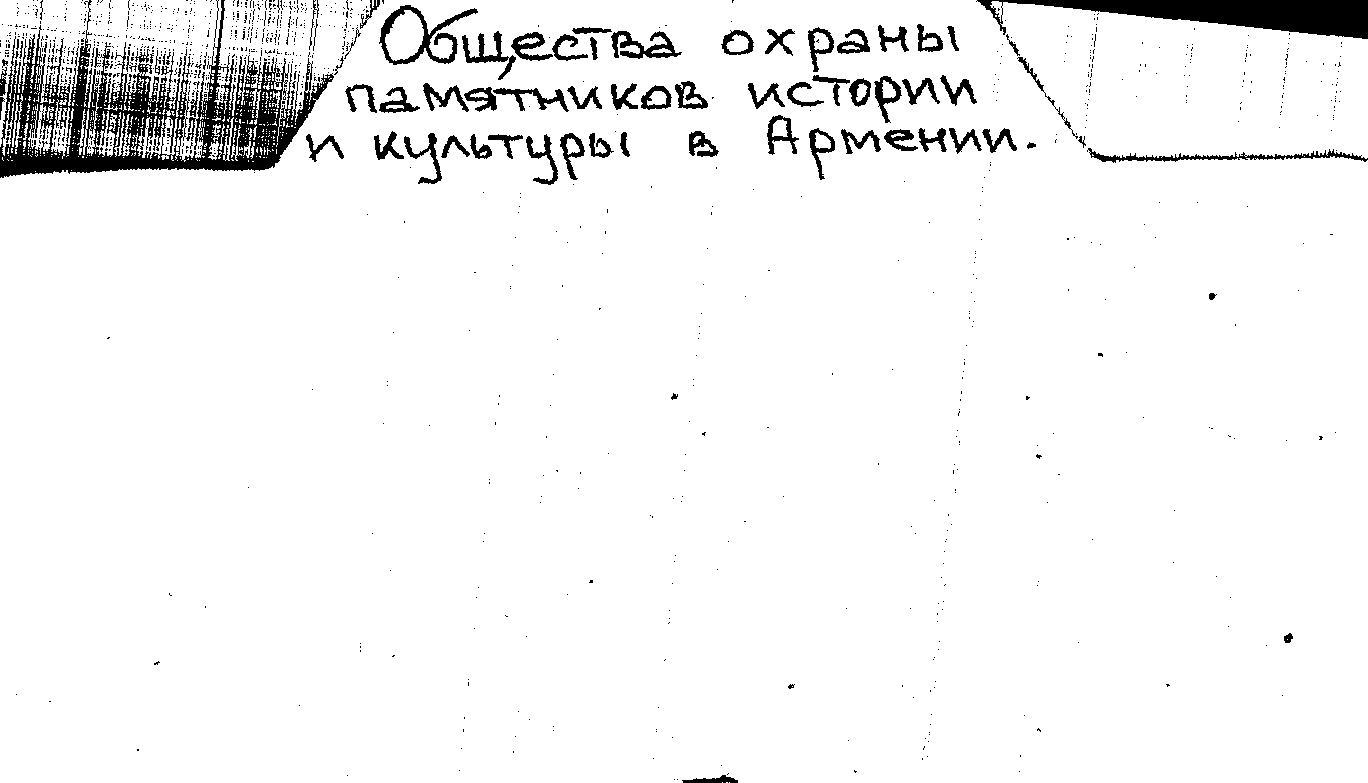 Общества охраны
памятников истории
и культуры в Армении.